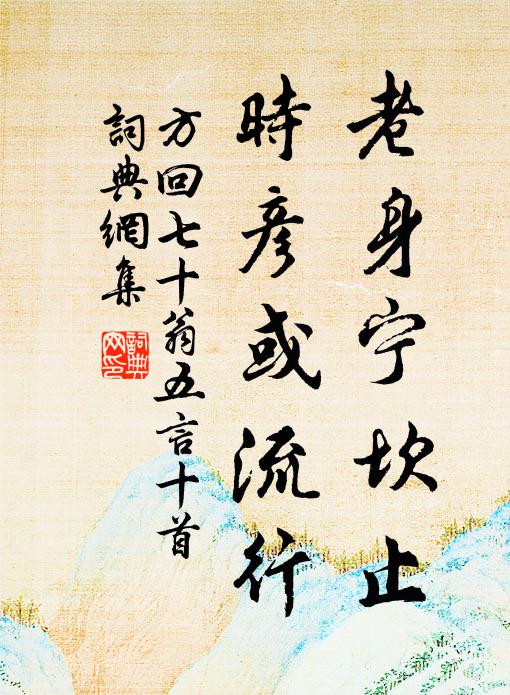 老身宁坎止
時彦或流行
方回七十翁五言十首
詞典網集
詞典网印